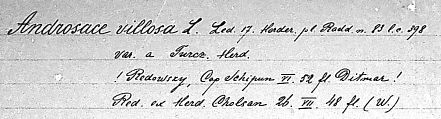 Androsace villosa L. Led. 17. Herder, pl. Radd. n. 83 l. c. 398
var. a Turcz. Herd.
! Redowszy, Cap Schipun VI. 52 fl. Ditmar!
Red. ex Herd. Cholsan 26. VII. 48 fl. (W.)